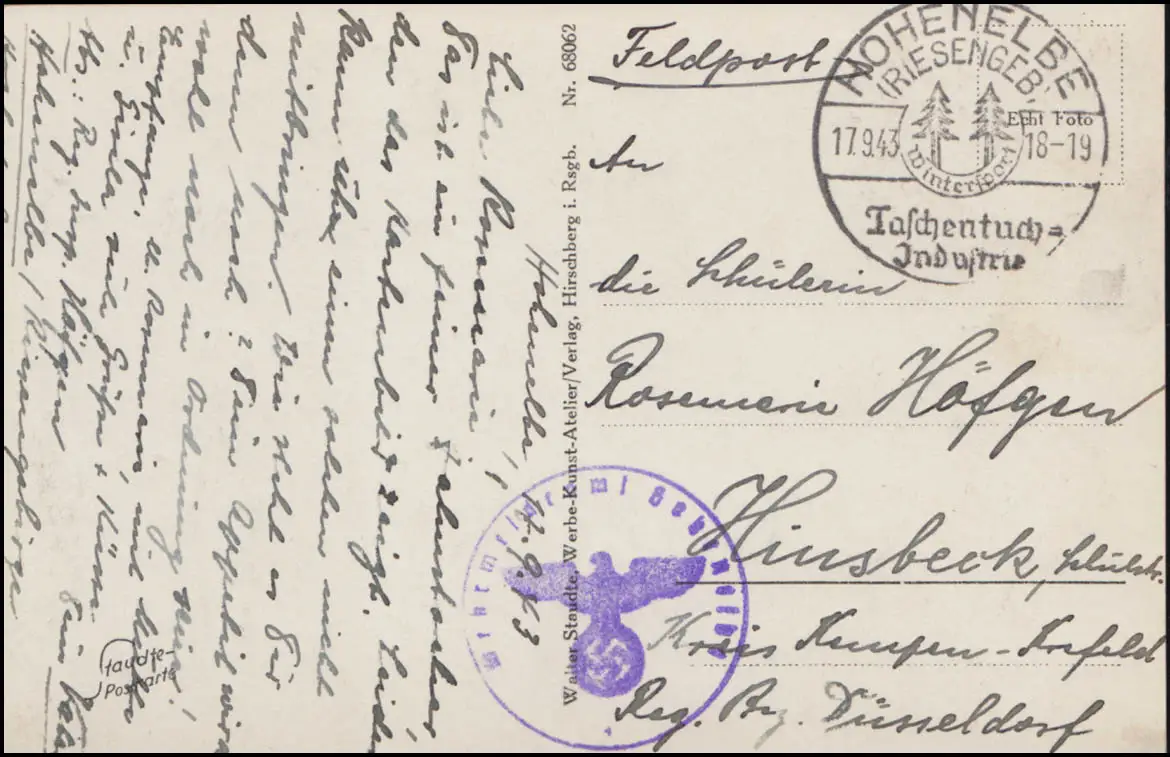 Feldpost
An
die Schülerin
Rosemarie Höfgen
Hinsbeck, Schulstr.
Kreis Kempen-Krefeld
Reg. Bez. Düsseldorf
HOHENELBE
(RIESENGEB.)
17.9.43
18-19
Wintersport
Taschentuch=
Industrie
Echt Foto
Walter Staudte, Werbe-Kunst-Atelier/Verlag, Hirschberg i. Rsgb. Nr. 68062
Hohenelbe, 17.9.43
Liebe Rosemarie!
Das ist ein feiner
den das Kartenbild zeigt. Leider
kann einen solchen nicht
mitbringen. Wie geht es Dir
denn noch? Dein Appetit wird
wohl noch in Ordnung sein!
Empfange, lb. Rosemarie, mit
u. Gisela viele Grüße + Küsse
Dein Vati
Abs.: Reg. Insp. Höfgen
Hohenelbe/Riesengebirge
Staudte-
Postkarte